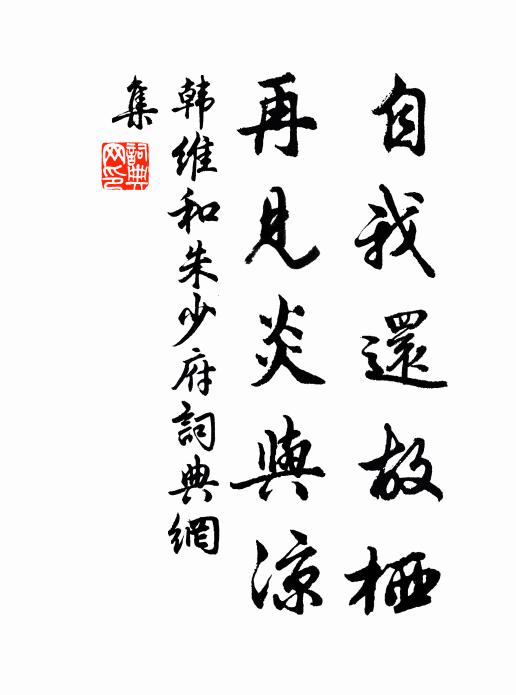 自我還故栖
再見炎與涼
韩維和朱少府詞典網
集
詞典
网印